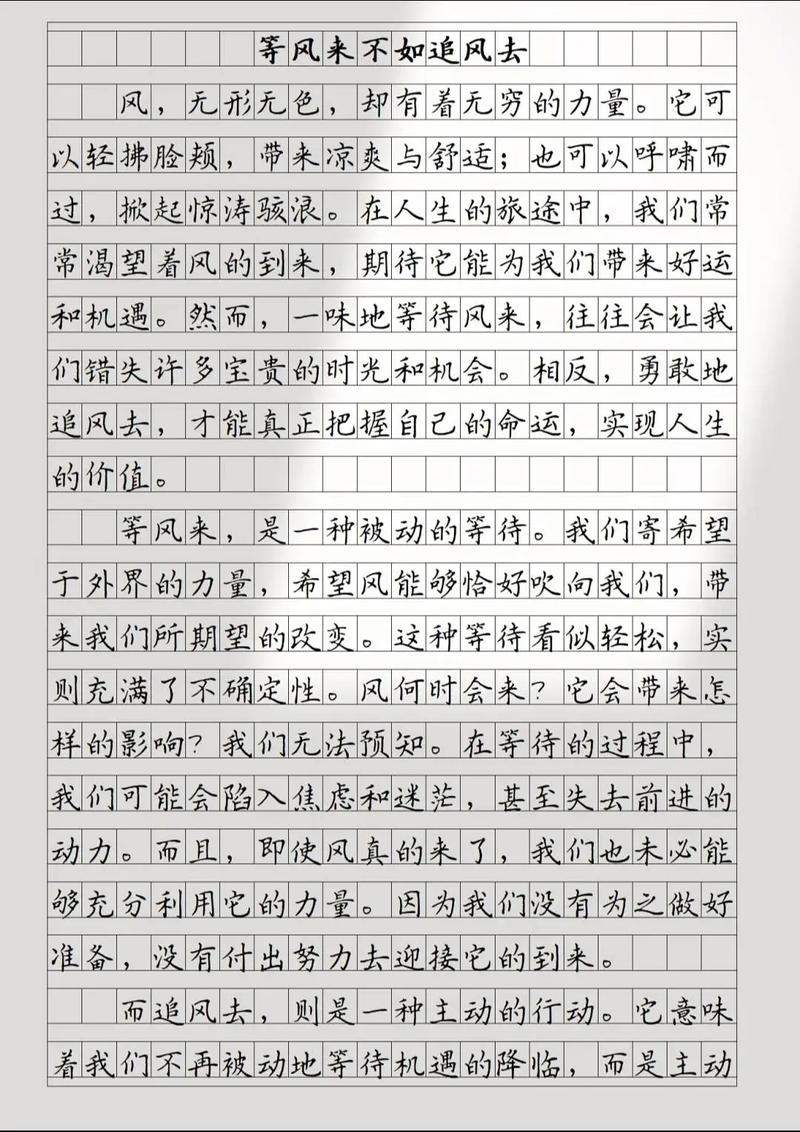 等风来不如追风去
风，无形无色，却有着无穷的力量。它可
以轻拂脸颊，带来凉爽与舒适；也可以呼啸而
过，掀起惊涛骇浪。在人生的旅途中，我们常
常渴望着风的到来，期待它能为我们带来好运
和机遇。然而，一味地等待风来，往往会让我
们错失许多宝贵的时光和机会。相反，勇敢地
追风去，才能真正把握自己的命运，实现人生
的价值。
等风来，是一种被动的等待。我们寄希望
于外界的力量，希望风能够恰好吹向我们，带
来我们所期望的改变。这种等待看似轻松，实
则充满了不确定性。风何时会来？它会带来怎
样的影响？我们无法预知。在等待的过程中，
我们可能会陷入焦虑和迷茫，甚至失去前进的
动力。而且，即使风真的来了，我们也未必能
够充分利用它的力量。因为我们没有为之做好
准备，没有付出努力去迎接它的到来。
而追风去，则是一种主动的行动。它意味
着我们不再被动地等待机遇的降临，而是主动